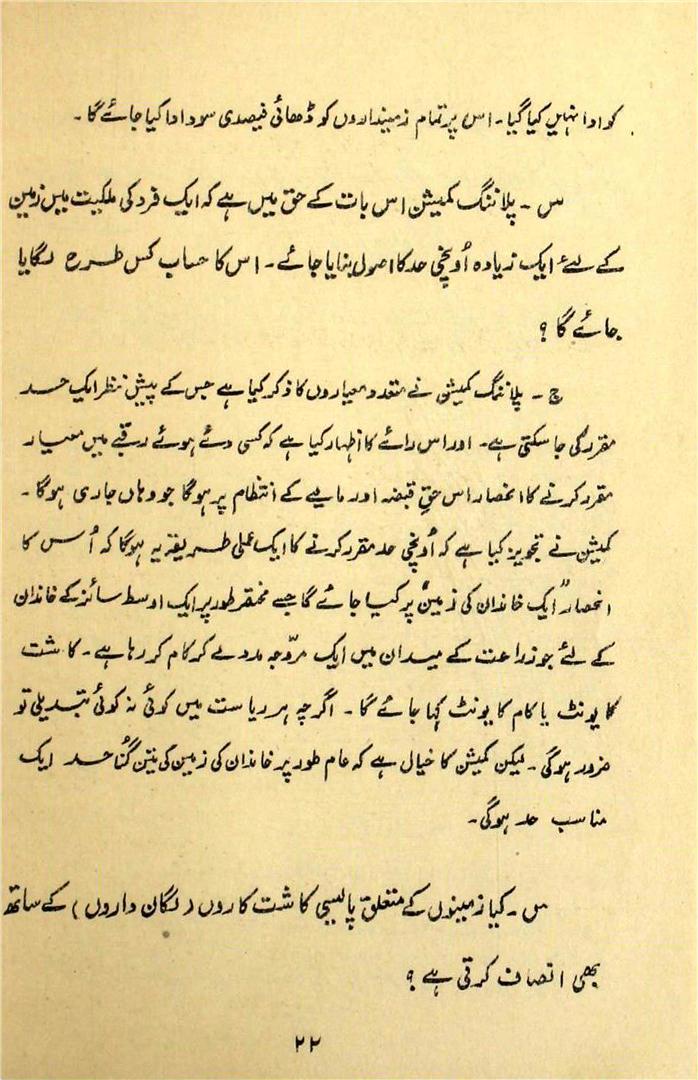 کو ادا نہیں کیا گیا۔ اس پر تمام زمینداروں کو ڈھائی فیصدی سود ادا کیا جائے گا۔
س ۔ پلاننگ کمیشن اس بات کے حق میں ہے کہ ایک فرد کی ملکیت میں زمین
کے لئے ایک زیادہ اُونچی حد کا اصول بنایا جائے۔ اس کا حساب کس طرح لگایا
جائے گا ؟
ج ۔ پلاننگ کمیشن نے متعدد معیاروں کا ذکر کیا ہے جس کے پیش نظر ایک حد
مقرر کی جا سکتی ہے۔ اور اس رائے کا اظہار کیا ہے کہ کسی دئے ہوئے رقبے میں معیار
مقرر کرنے کا انحصار اس حقِ قبضہ اور مالیے کے انتظام پر ہوگا جو وہاں جاری ہوگا۔
کمیشن نے تجویز کیا ہے کہ اُونچی حد مقرر کرنے کا ایک عملی طریقہ یہ ہوگا کہ اُس کا
انحصار "ایک خاندان کی زمین" پر کیا جائے گا جسے مختصر طور پر ایک اوسط سائز کے خاندان
کے لئے جو زراعت کے میدان میں ایک مروّجہ مدد لے کر کام کر رہا ہے۔ کاشت
کا یونٹ یا کام کا یونٹ کہا جائے گا۔ اگرچہ ہر ریاست میں کوئی نہ کوئی تبدیلی تو
ضرور ہوگی۔ لیکن کمیشن کا خیال ہے کہ عام طور پر خاندان کی زمین کی تین گُنا حد ایک
مناسب حد ہوگی۔
س ۔ کیا زمینوں کے متعلق پالیسی کاشت کاروں (لگان داروں) کے ساتھ
بھی انصاف کرتی ہے ؟
۲۲